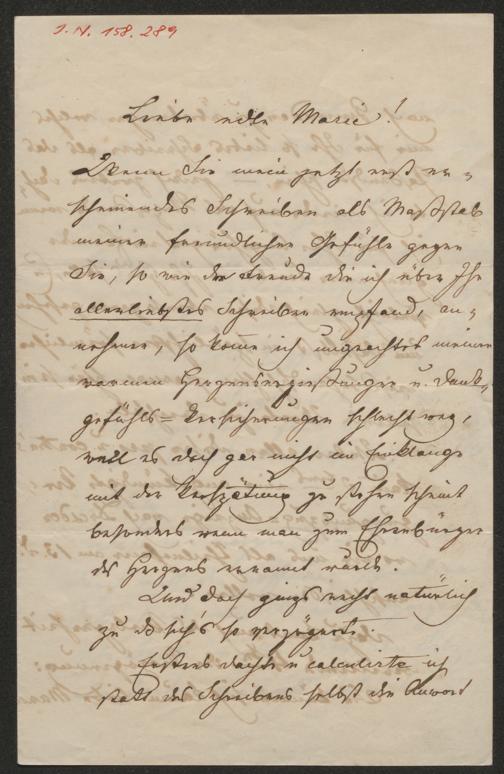 I. N. 158.289
Liebe edle Marie!
Wenn Sie mein jetzt erst er-
scheinendes Schreiben als Maßstab
meiner freundlichen Gefühle gegen
Sie, so wie der Freude die ich über Ihr
allerliebstes Schreiben empfand, an-
nehmen, so komme ich ungeachtet meiner
warmen Herzensergießungen u. Dank-
gefühls=Versicherungen schlecht weg,
weil es doch gar nicht im Einklange
mit der Verspätung zu stehen scheint
besonders wenn man zum Ehrenbürger
des Herzens ernannt wurde.
Und doch gings recht natürlich
zu daß sich's so verzögerte
Erstens dachte u calculirte ich
statt des Schreibens selbst die Antwort